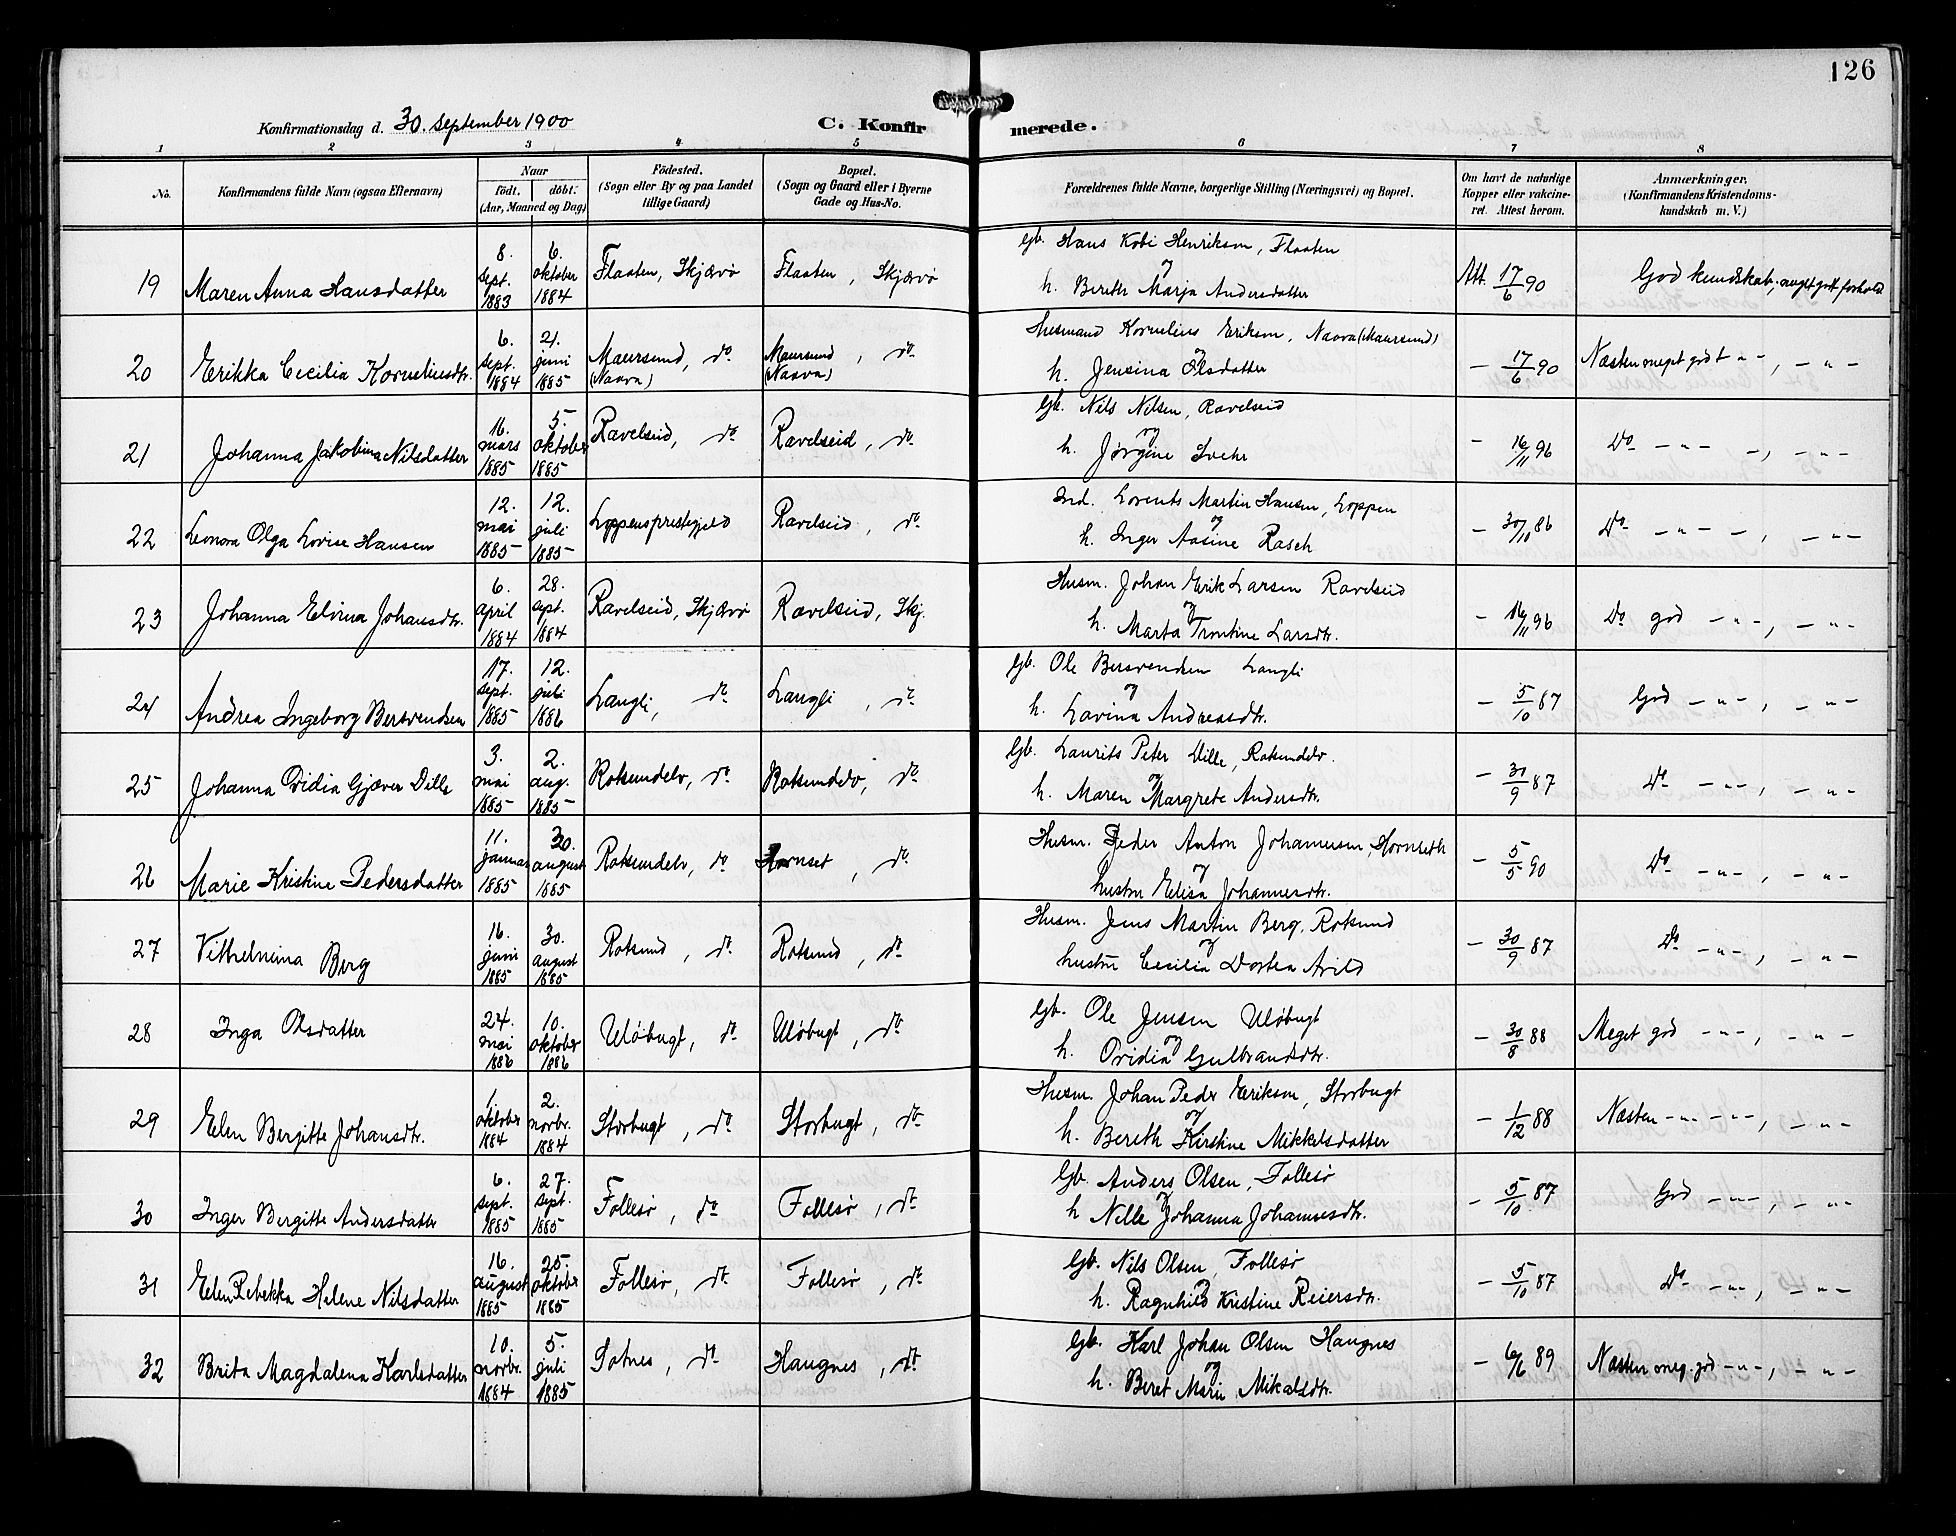 126
Konfirmationsdag d. 30. september 1900
C. Konfirmerede.
1 2 3 4 5 6 7 8
No.
Konfirmandens fulde Navn (ogsaa Efternavn)
Naar
födt. döbt.
(Aar, Maaned og Dag)
Födested.
(Sogn eller By og paa Landet
tillige Gaard)
Bopæl.
(Sogn og Gaard eller i Byerne
Gade og Hus-No.
Forældrenes fulde Navne, borgerlige Stilling (Næringsvei) og Bopæl.
Om havt de naturlige
Kopper eller vakcine-
ret. Attest herom.
Anmærkninger.
(Konfirmandens Kristendoms-
kundskab m. V.)
19 Maren Anna Hansdatter
8. sept. 1883
6. oktober 1884
Flaaten, Skjærvø
Flaaten, Skjærvø
Gb. Hans Kobi Henriksen, Flaaten
og
h. Bereth Marja Andersdatter
Att. 17/6 90
God kundskab, meget godt forhold
20 Erikka Cecilia Korneliusdtr.
6. sept. 1884
21. juni 1885
Maursund, do (Naava)
Maursund, do (Naava)
Husmand Kornelius Eriksen, Naava (Maursund)
og
h. Jensina Olsdatter
– 17/6 90
Næsten meget godt – " –, – " –
21 Johanna Jakobina Nilsdatter
16. mars 1885
5. oktober 1885
Ravelseid, do
Ravelseid, do
Gb. Nils Nilsen, Ravelseid
og
h. Jørgine
– 16/11 96
Do – " – –, – " –
22 Leonora Olga Lovise Hansen
12. mai 1885
12. juli 1885
Loppens prestegjeld
Ravelseid, do
Ind. Lorents Martin Hansen, Loppen
og
h. Inger Aasine Rasch
– 30/10 86
Do – " – –, – " –
23 Johanna Elvina Johansdtr.
6. april 1884
28. sept. 1884
Ravelseid, Skjærvø
Ravelseid, Skj.
Husm. Johan Erik Larsen Ravelseid
og
h. Marta Trontine Larsdtr.
– 16/11 96
Do god – " –, – " –
24 Andrea Ingeborg Bersvendsen
17. sept. 1885
12. juli 1886
Langli, do
Langli, do
Gb. Ole Bersvendsen Langli
og
h. Lavina Andreasdtr.
– 5/10 87
God – " –, – " –
25 Johanna Ovidia Gjæver Dille
3. mai 1885
2. aug. 1885
Rotsundelv, do
Rotsundelv, do
Gb. Laurits Peter Dille, Rotsundelv.
og
h. Maren Margrete Andersdtr.
– 30/9 87
Do – " –, – " –
26 Marie Kristine Pedersdatter
11. januar 1885
30. august 1885
Rotsundelv, do
Hornset, do
Husm. Peder Anton Johannesen, Hornseth
og
hustru Elisa Johannesdtr.
– 5/5 90
Do – " –, – " –
27 Vilhelmina Berg
16. juni 1885
30. august 1885
Rotsund, do
Rotsund, do
Husm. Jens Martin Berg, Rotsund
og
hustru Cecilia Dortea Arild
– 30/9 87
Do – " –, – " –
28 Inga Olsdatter
24. mai 1886
10. oktober 1886
Uløbugt, do
Uløbugt, do
Gb. Ole Jensen Uløbugt
og
h. Ovidia Gulbrandsdtr.
– 30/8 88
Meget god – " –, – " –
29 Elen Bergitte Johansdtr.
1. oktober 1884
2. novbr. 1884
Storbugt, do
Storbugt, do
Husm. Johan Peder Eriksen, Storbugt
og
h. Bereth Kirstine Mikkelsdatter
– 1/12 88
Næsten – " – – " –, – " –
30 Inger Bergitte Andersdatter
6. sept. 1885
27. sept. 1885
Follesø, do
Follesø, do
Gb. Anders Olsen, Follesø
og
h Nille Johanna Johannesdtr.
– 5/10 87
God – " –, – " –
31 Elen Rebekka Helene Nilsdatter
16. august 1885
25. oktober 1885
Follesø, do
Follesø, do
Gb. Nils Olsen, Follesø
og
h. Ragnhild Kristine Reiersdtr.
– 5/10 87
Do – " –, – " –
32 Brita Magdalena Karlsdatter
10. novbr. 1884
5. juli 1885
Sotnes, do
Haugnes, do
Gb. Karl Johan Olsen Haugnes
og
h. Beret Marie Mikalsdtr.
– 6/6 89
Næsten meg. god – " –, – " –